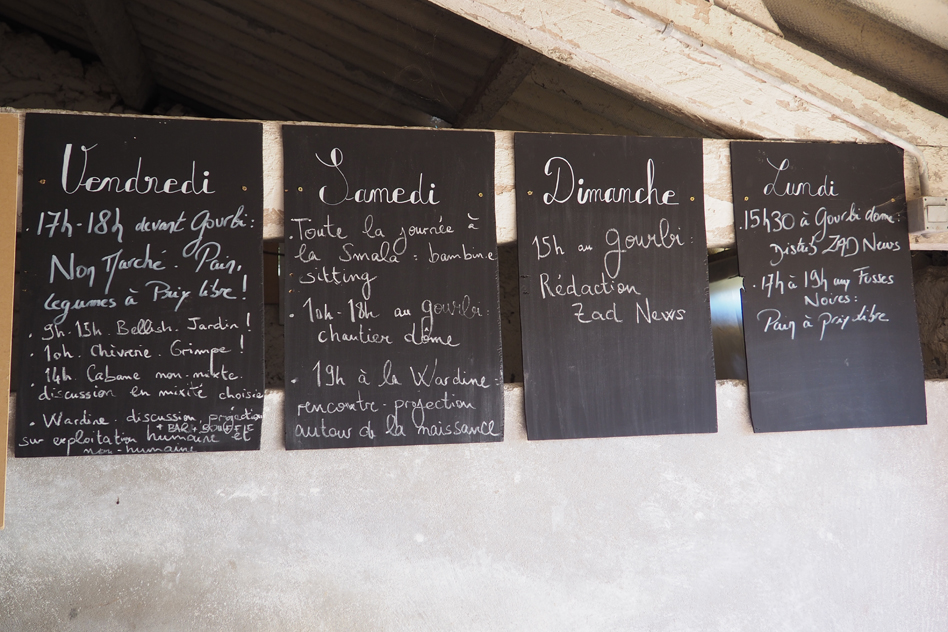 Vendredi
. 17h-18h devant Gourbi :
Non Marché. Pain,
légumes à Prix libre !
. 9h-15h. Bellish. Jardin !
. 10h. Chèvrerie. Grimpe !
. 14h. Cabane non-mixte.
discussion en mixité choisie
. Wardine discussion, projection
+ BAR +
sur exploitation humaine et
non-humaine
Samedi
. Toute la journée à
la Smala : bambine
sitting
. 10h-18h au gourbi :
chantier dôme
. 19h à la Wardine :
rencontre-projection
autour de la naissance
Dimanche
15h au Gourbi :
Rédaction
Zad News
Lundi
. 15h30 à Gourbi dome :
Distrib ZAD News
. 17h à 19h aux Fosses
Noires :
Pain à prix libre